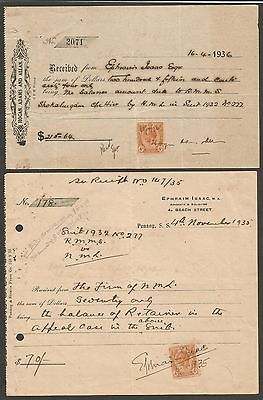 HOGAN, ADAMS AND ALLAN
No. 2071
16-4-1936
Received from Ephraim Isaac Esqr
the sum of Dollars two hundred & fifteen and cents
sixty four only
being the balance amount due to R.M.M.S.
Chettiar by N.M.L. in Suit 1932 No 277
$ 215.64
See Receipt No 147/35
EPHRAIM ISAAC, M.A.
ADVOCATE & SOLICITOR
4, BEACH STREET.
No. 178
Penang, S. S. 4th November 1935
Suit 1932 No 277
R.M.M.S.
vs
N.M.L.
Received from The Firm of N.M.L.
the sum of Dollars Seventy only
being the balance of Retainer in the
Appeal Case in the above Suit.
Ephraim Isaac
$ 70/-